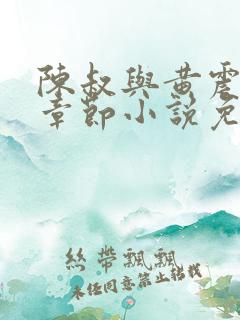 陳叔與黃震
章節小說免
絲帶飄飄
未經同意禁止轉載